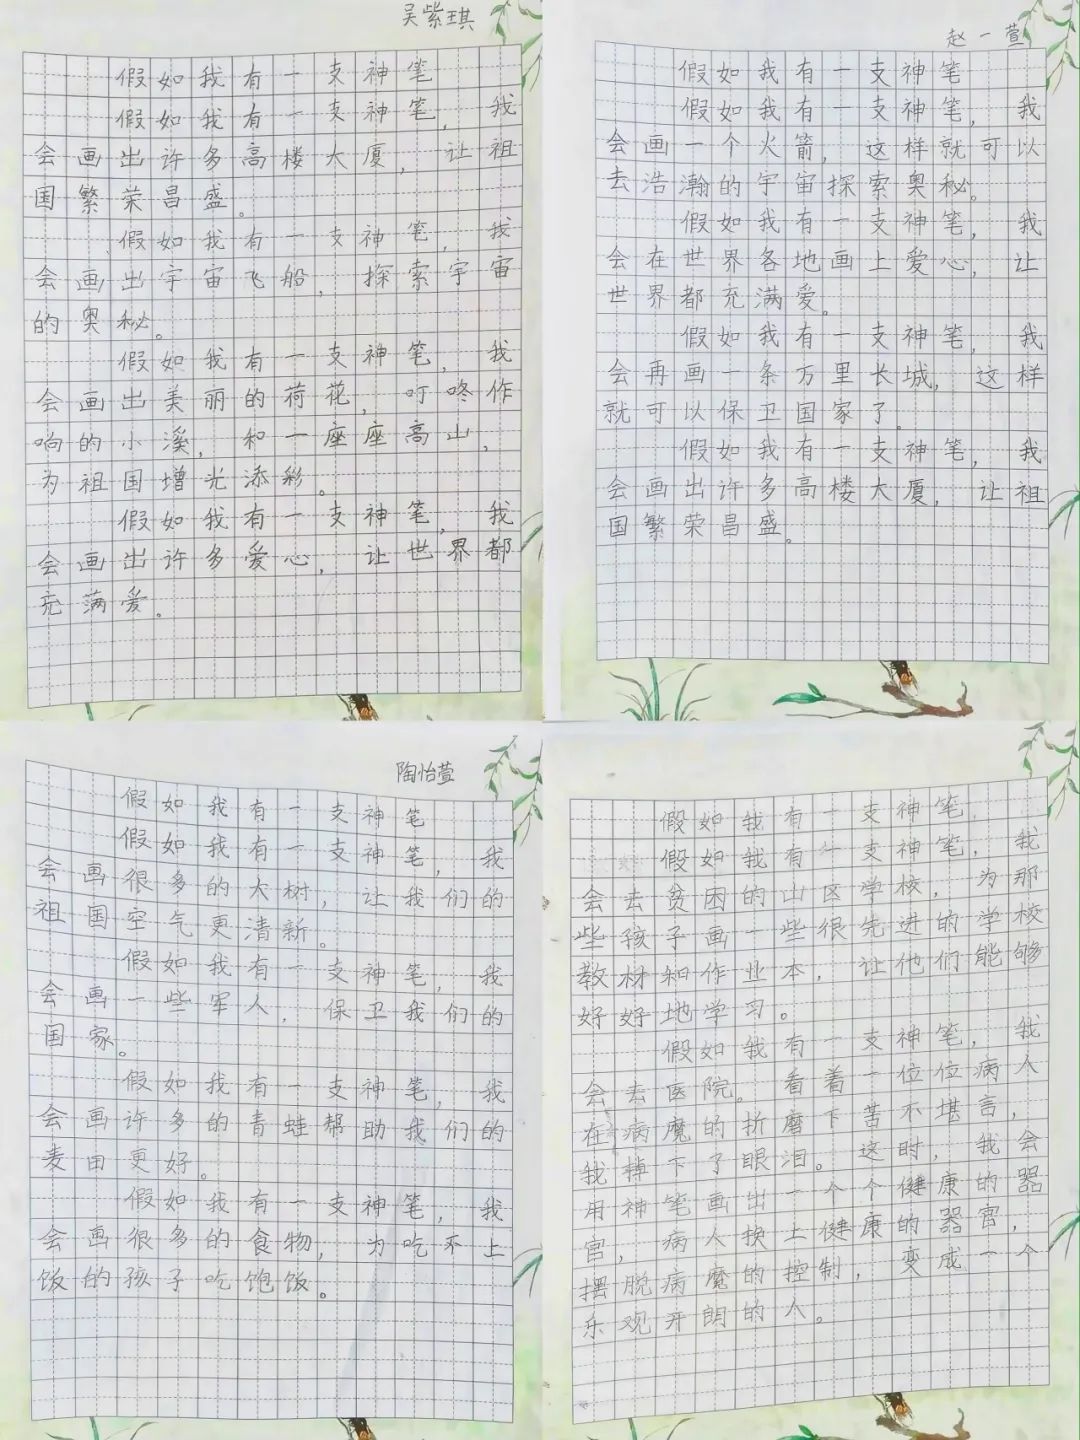 吴紫琪
假如我有一支神笔
假如我有一支神笔，我
会画出许多高楼大厦，让祖
国繁荣昌盛。
假如我有一支神笔，我
会画出宇宙飞船，探索宇宙
的奥秘。
假如我有一支神笔，我
会画出美丽的荷花，叮咚作
响的小溪，和一座座高山，
为祖国增光添彩。
假如我有一支神笔，我
会画出许多爱心，让世界都
充满爱。
赵一萱
假如我有一支神笔
假如我有一支神笔，我
会画一个火箭，这样就可以
去浩瀚的宇宙探索奥秘。
假如我有一支神笔，我
会在世界各地画上爱心，让
世界都充满爱。
假如我有一支神笔，我
会再画一条万里长城，这样
就可以保卫国家了。
假如我有一支神笔，我
会画出许多高楼大厦，让祖
国繁荣昌盛。
陶怡萱
假如我有一支神笔
假如我有一支神笔，我
会画很多的大树，让我们的
祖国空气更清新。
假如我有一支神笔，我
会画一些军人，保卫我们的
国家。
假如我有一支神笔，我
会画许多的青蛙帮助我们的
麦田更好。
假如我有一支神笔，我
会画很多的食物，为吃不上
饭的孩子吃饱饭。
假如我有一支神笔
假如我有一支神笔，我
会去贫困的山区学校，为那
些孩子画一些很先进的学校
教材和作业本，让他们能够
好好地学习。
假如我有一支神笔，我
会去医院。看着一位位病人
在病魔的折磨下苦不堪言，
我掉下了眼泪。这时，我会
用神笔画出一个个健康的器
官，病人换上健康的器官，
摆脱病魔的控制，变成一个
乐观开朗的人。